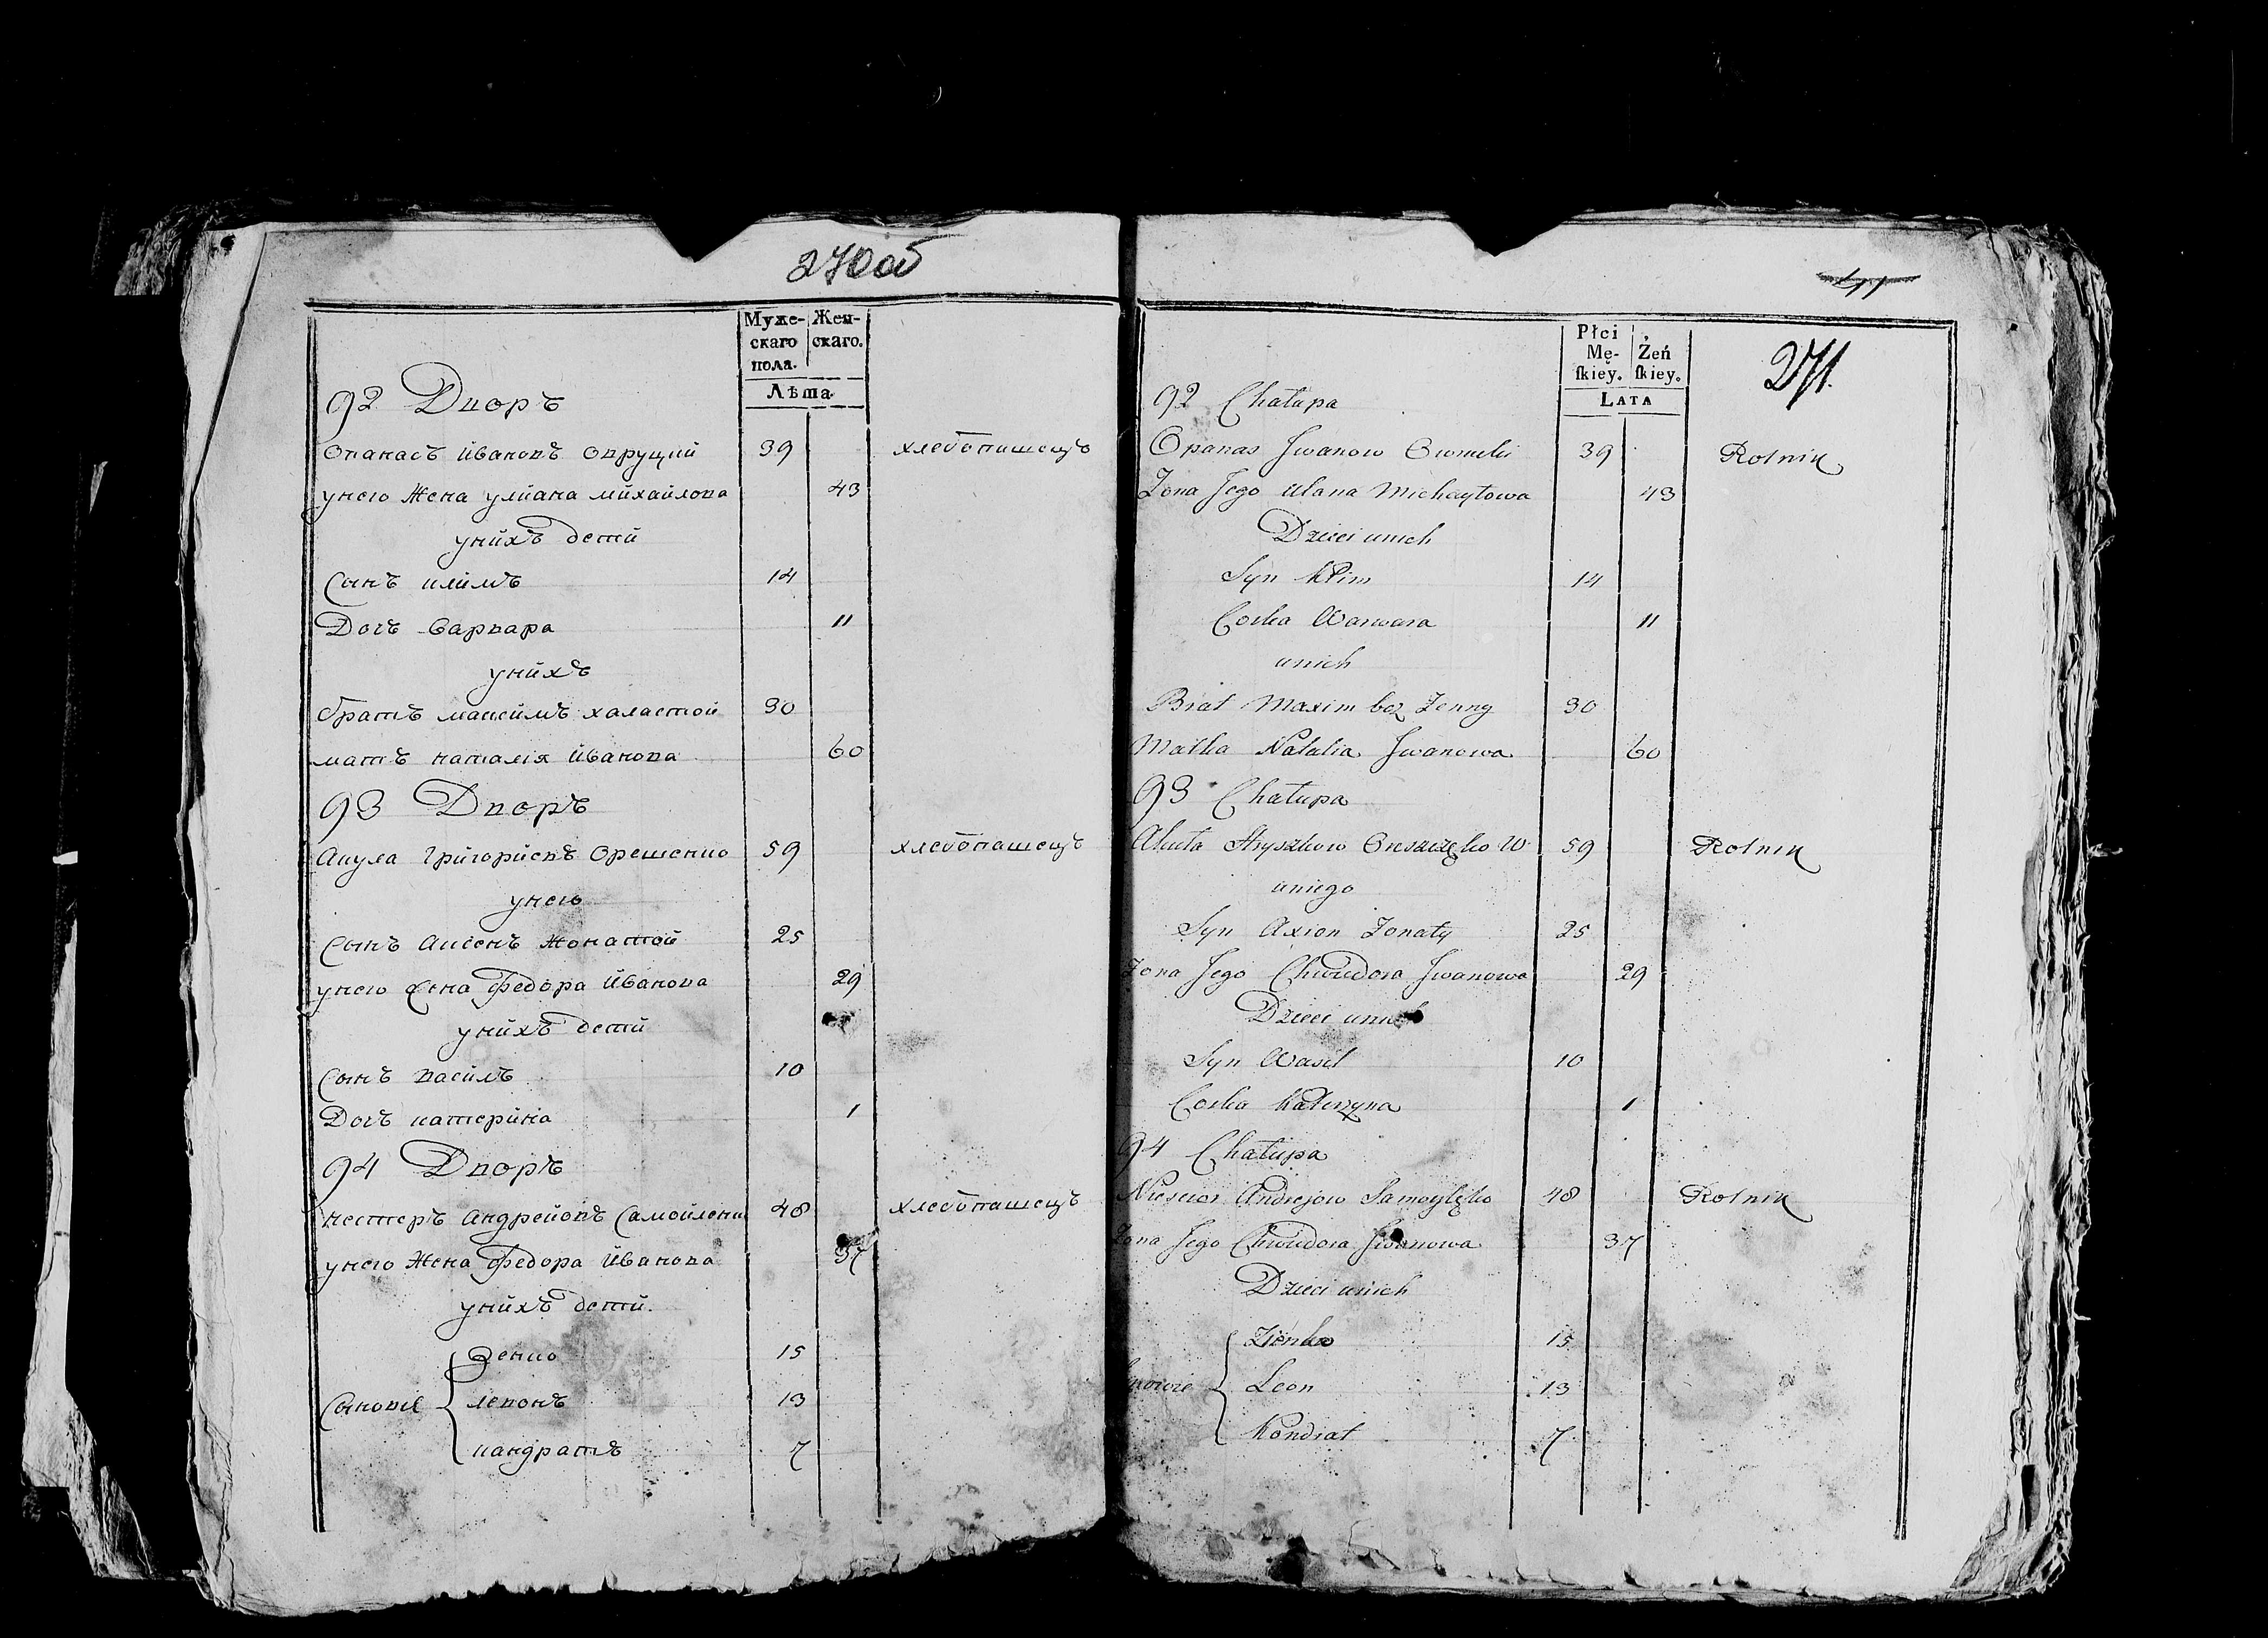 270 об
Муже-
скаго
пола.
Жен-
скаго.
Лѣта
92 Дворъ
Опанасъ Йвановъ Овруцкий 39 хлебопашецъ
унего Жена улйана мйхайлова 43
унйхъ детй
Сынъ клймъ 14
Дочъ Варвара 11
унйхъ
братъ максймъ халастой 30
матъ наталія Йванова 60
93 Дворъ
Акула Григорйевъ Орешенко 59 хлебопашецъ
унего
Сынъ Аксенъ Жонатой 25
унего Жена Федора Йванова 29
унйхъ детй
Сынъ васйлъ 10
Дочъ катерйна 1
94 Дворъ
нестеръ Андрейовъ Самойленко 48 хлебопашецъ
унего Жена Федора Йванова 37
унйхъ детй.
Зенко 15
Сыновіе левонъ 13
кандратъ 7
271.
Płci
Mę-
ſkiey.
Żeń
ſkiey.
LATA
92 Chałupa
Opanas Jwanow 39 Rolnik
Zona Jego Ulana Michayłowa 43
Dzieci unich
Syn Klim 14
Corka Warwara 11
unich
Brat Maxim bez Zenny 30
Matka Natalia Jwanowa 60
93 Chałupa
Akuła Hryszkow 59 Rolnik
uniego
Syn Axion Zonaty 25
Zona Jego Chwedora Jwanowa 29
Dzieci unich
Syn Wasil 10
Corka Katerzyna 1
94 Chałupa
Niescior Andrejow Samoylęko 48 Rolnik
Zona Jego Chwedora Jwanowa 37
Dzieci unich
Zienko 15
Synowie Leon 13
Kondrat 7